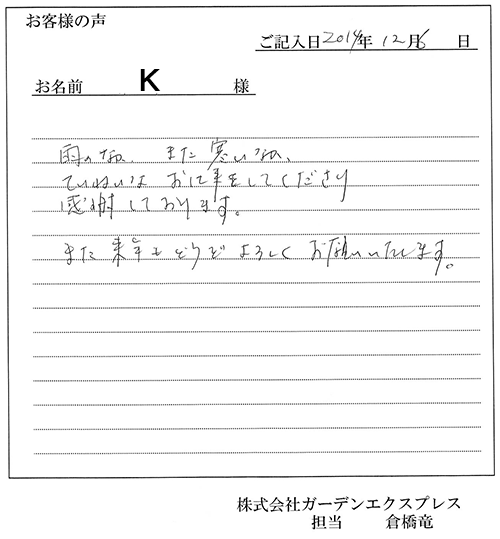 お客様の声
ご記入日 2014年 12月6日
お名前 K 様
雨の なか、また 寒い なか、
ていねいな お仕事をしてくださり
感謝しております。
また 来年も どうぞ よろしく お願いいたします。
株式会社ガーデンエクスプレス
担当 倉橋竜